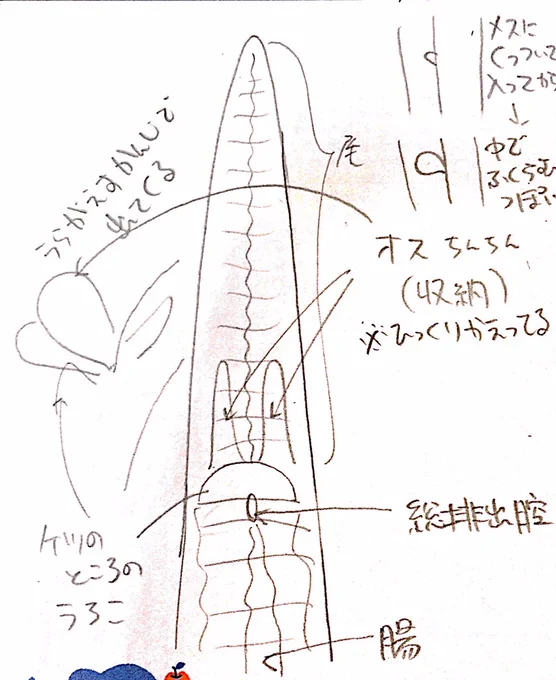 メスに
くっついて
入ってから
↓
中で
ふくらむ
っぽい
尾
うらがえすかんじで
出てくる
オス ちんちん
(収納)
※ひっくりかえってる
総排出腔
ケツの
ところの
うろこ
腸